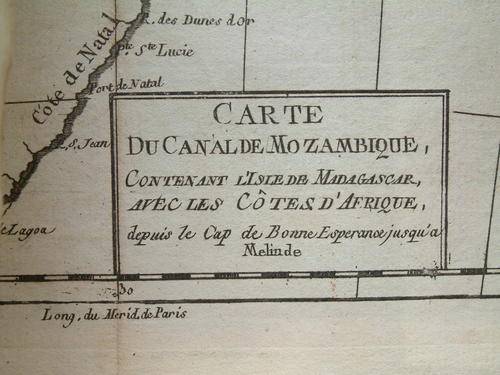 R. des Dunes d'or
Pte. Ste Lucie
Côte de Natal
Port de Natal
R. S. Jean
de Lagoa
CARTE
DU CANAL DE MOZAMBIQUE,
CONTENANT L'ISLE DE MADAGASCAR,
AVEC LES CÔTES D'AFRIQUE,
depuis le Cap de Bonne Esperance jusqu'a
Melinde
30
Long. du Merid. de Paris